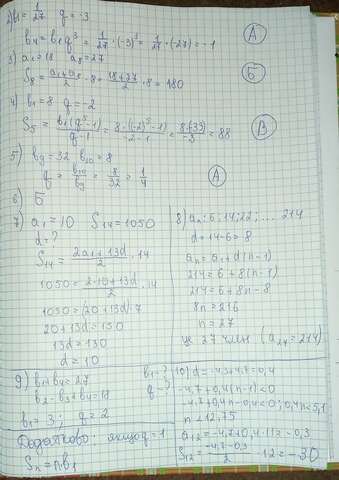 2) b₁ = 1/27 q = -3
b₄ = b₁q³ = 1/27 · (-3)³ = 1/27 · (-27) = -1 А
3) a₁ = 18 a₈ = 27
S₈ = (a₁+a₈)/2 · 8 = (18+27)/2 · 8 = 180 Б
4) b₁ = 8 q = -2
S₅ = b₁(q⁵-1)/(q-1) = 8·((-2)⁵-1)/(-2-1) = 8·(-33)/(-3) = 88 В
5) b₉ = 32 b₁₀ = 8
q = b₁₀/b₉ = 8/32 = 1/4 А
6) Б
7) a₁ = 10 S₁₄ = 1050
d = ?
S₁₄ = (2a₁+13d)/2 · 14
1050 = (2·10+13d)/2 · 14
1050 = (20+13d)·7
20+13d = 150
13d = 130
d = 10
8) aₙ: 6; 14; 22; .... 214
d = 14-6 = 8
aₙ = a₁+d(n-1)
214 = 6+8(n-1)
214 = 6+8n-8
8n = 216
n = 27
це 27 член (a₂₇ = 214)
9) b₁+b₄ = 27 b₁-?
b₂-b₃+b₄ = 18 q-?
b₁ = 3; q = 2
Додатково: якщо q = 1
Sₙ = n·b₁
10) d = -4,3+4,7 = 0,4
-4,7+0,4(n-1)<0
-4,7+0,4n-0,4<0; 0,4n<5,1
n < 12,75
a₁₂ = -4,7+0,4·11 = -0,3
S₁₂ = (-4,7-0,3)/2 · 12 = -30